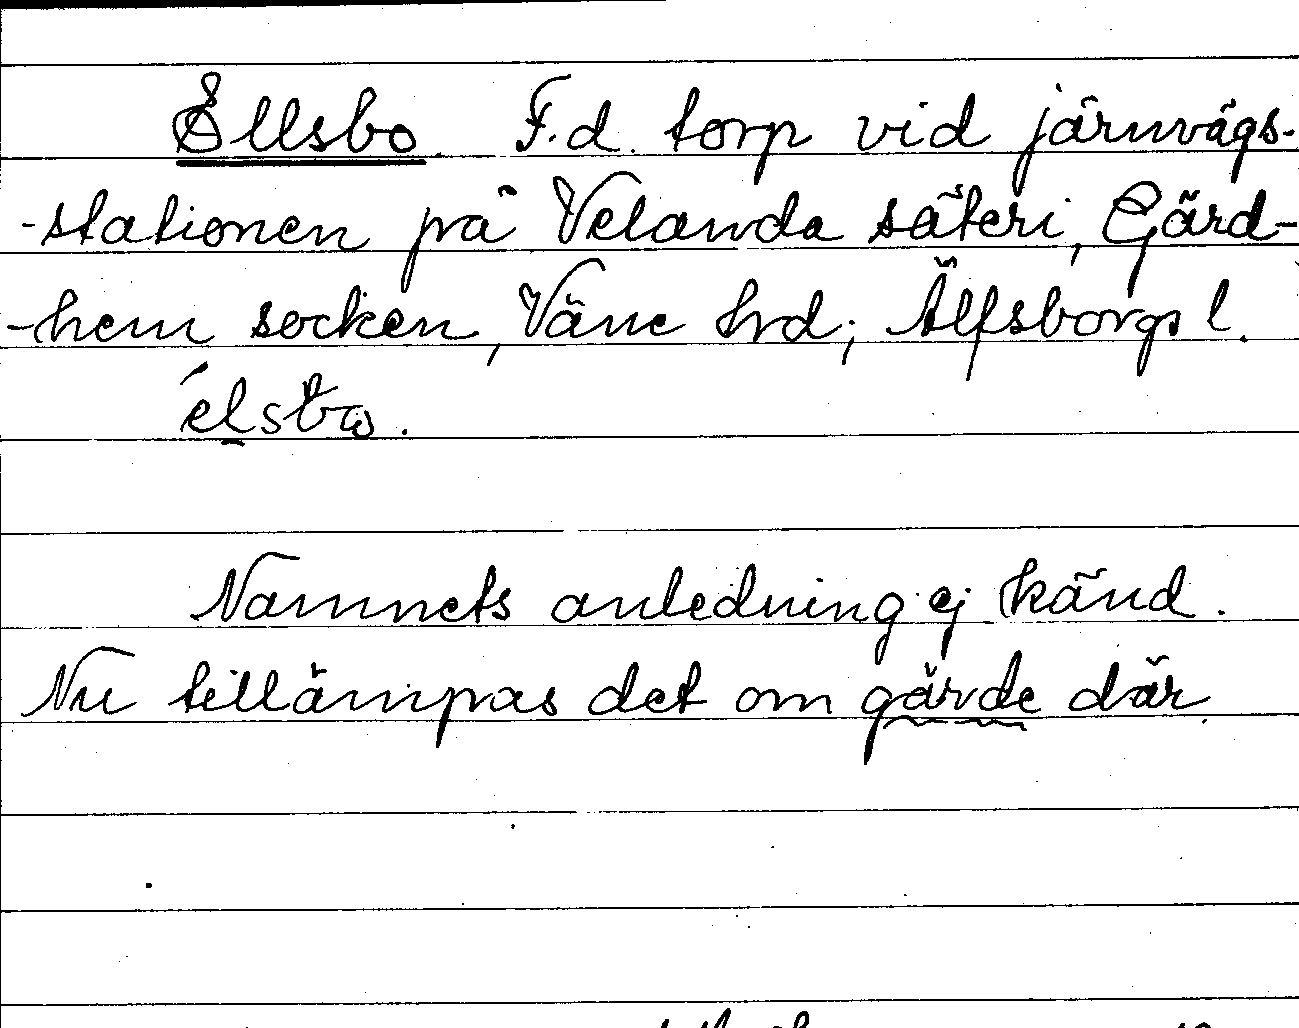 Ellsbo. F.d. torp vid järnvägs-
-stationen på Velanda säteri, Gärd-
-hem socken, Väne hrd; Älfsborgs l.
Namnets anledning ej känd.
Nu tillämpas det om gärde där.